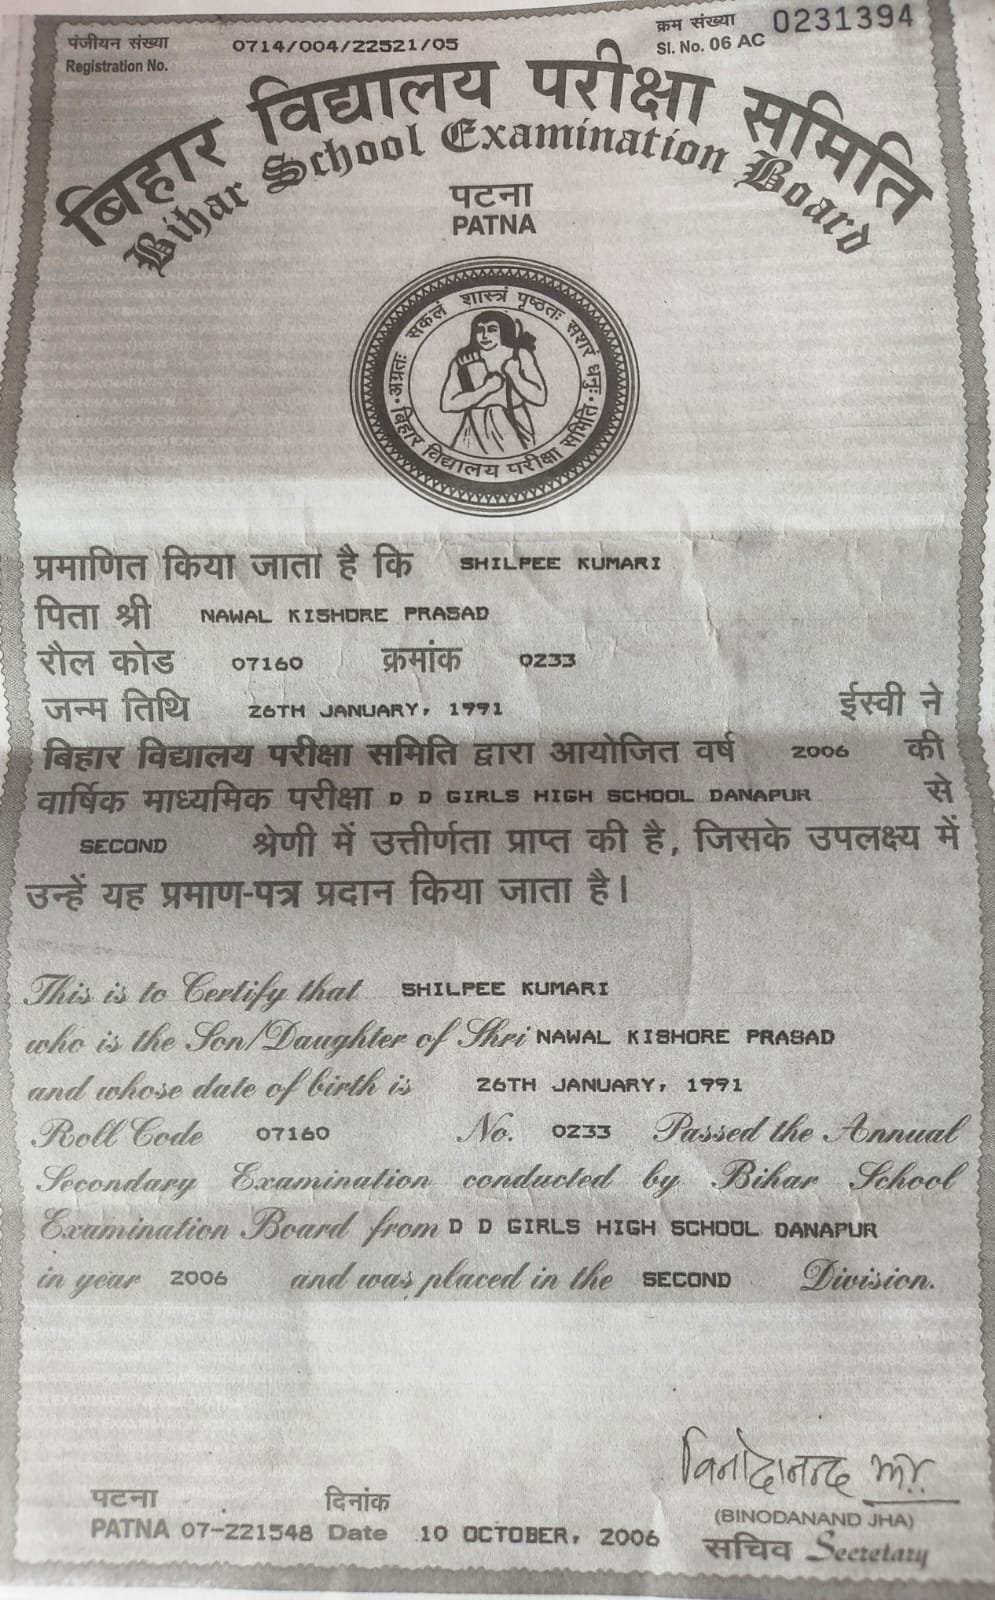 पंजीयन संख्या 0714/004/22521/05 क्रम संख्या 0231394
Registration No. Sl. No. 06 AC
बिहार विद्यालय परीक्षा समिति
Bihar School Examination Board
पटना
PATNA
अग्रतः सकलं शास्त्रं पृष्ठतः सशरं धनुः
बिहार विद्यालय परीक्षा समिति
प्रमाणित किया जाता है कि SHILPEE KUMARI
पिता श्री NAWAL KISHORE PRASAD
रौल कोड 07160 क्रमांक 0233
जन्म तिथि 26TH JANUARY, 1991 ईस्वी ने
बिहार विद्यालय परीक्षा समिति द्वारा आयोजित वर्ष 2006 की
वार्षिक माध्यमिक परीक्षा D D GIRLS HIGH SCHOOL DANAPUR से
SECOND श्रेणी में उत्तीर्णता प्राप्त की है, जिसके उपलक्ष्य में
उन्हें यह प्रमाण-पत्र प्रदान किया जाता है।
This is to Certify that SHILPEE KUMARI
who is the Son/Daughter of Shri NAWAL KISHORE PRASAD
and whose date of birth is 26TH JANUARY, 1991
Roll Code 07160 No. 0233 Passed the Annual
Secondary Examination conducted by Bihar School
Examination Board from D D GIRLS HIGH SCHOOL DANAPUR
in year 2006 and was placed in the SECOND Division.
विनोदानन्द झा
पटना दिनांक (BINODANAND JHA)
PATNA 07-221548 Date 10 OCTOBER, 2006 सचिव Secretary